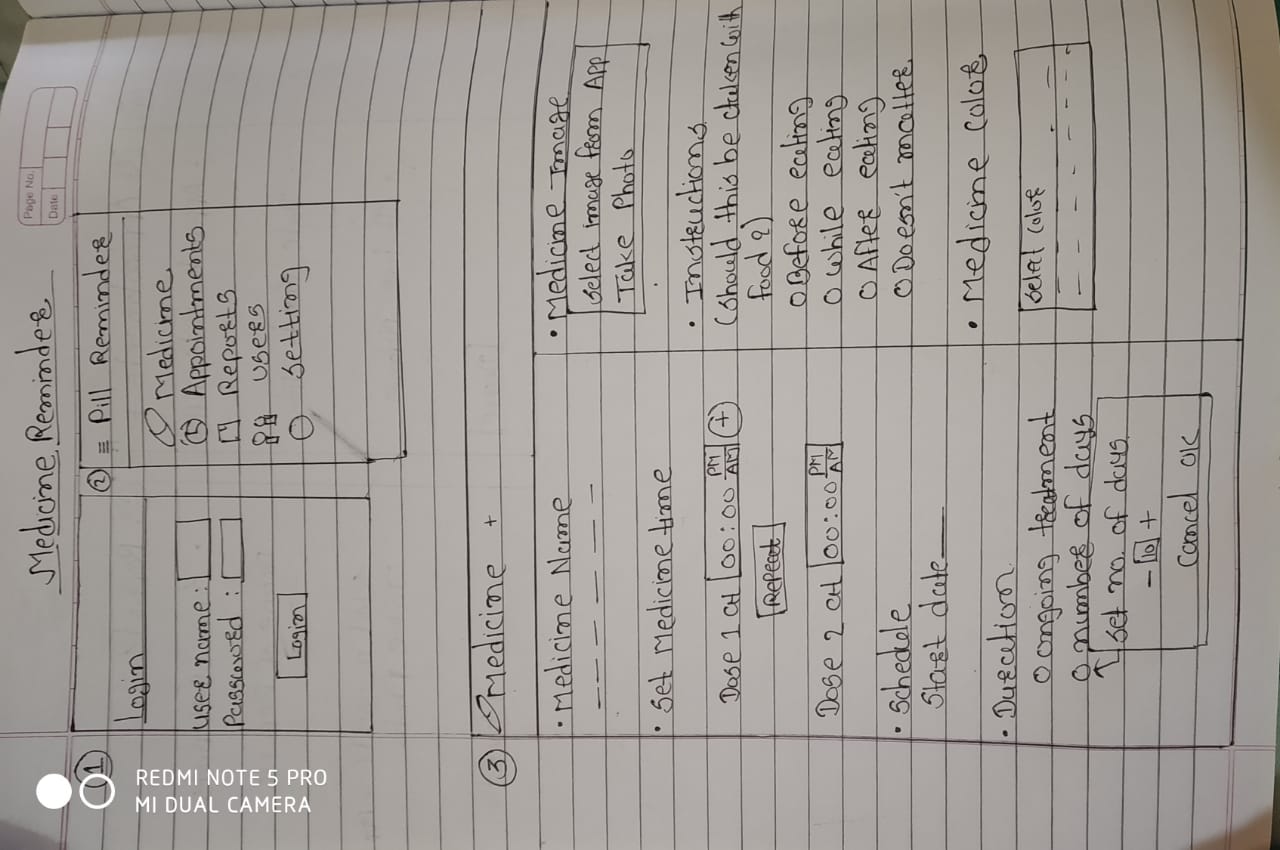 Medicine Reminder
Page No.
Date
REDMI NOTE 5 PRO
MI DUAL CAMERA
1
Login
user name :
Password :
Login
2
≡ Pill Reminder
Medicine
Appointments
Reports
users
Setting
3
Medicine +
• Medicine Name
• Set Medicine time
Dose 1 at 00:00 PM AM +
Repeat
Dose 2 at 00:00 PM AM
• Schedule
Start date
• Duration
ongoing treatment
number of days
Set no. of days
- 10 +
Cancel OK
• Medicine Image
Select image from App
Take Photo
• Instructions
(should this be taken with
food ?)
Before eating
while eating
After eating
Doesn't matter
• Medicine Color
Select color